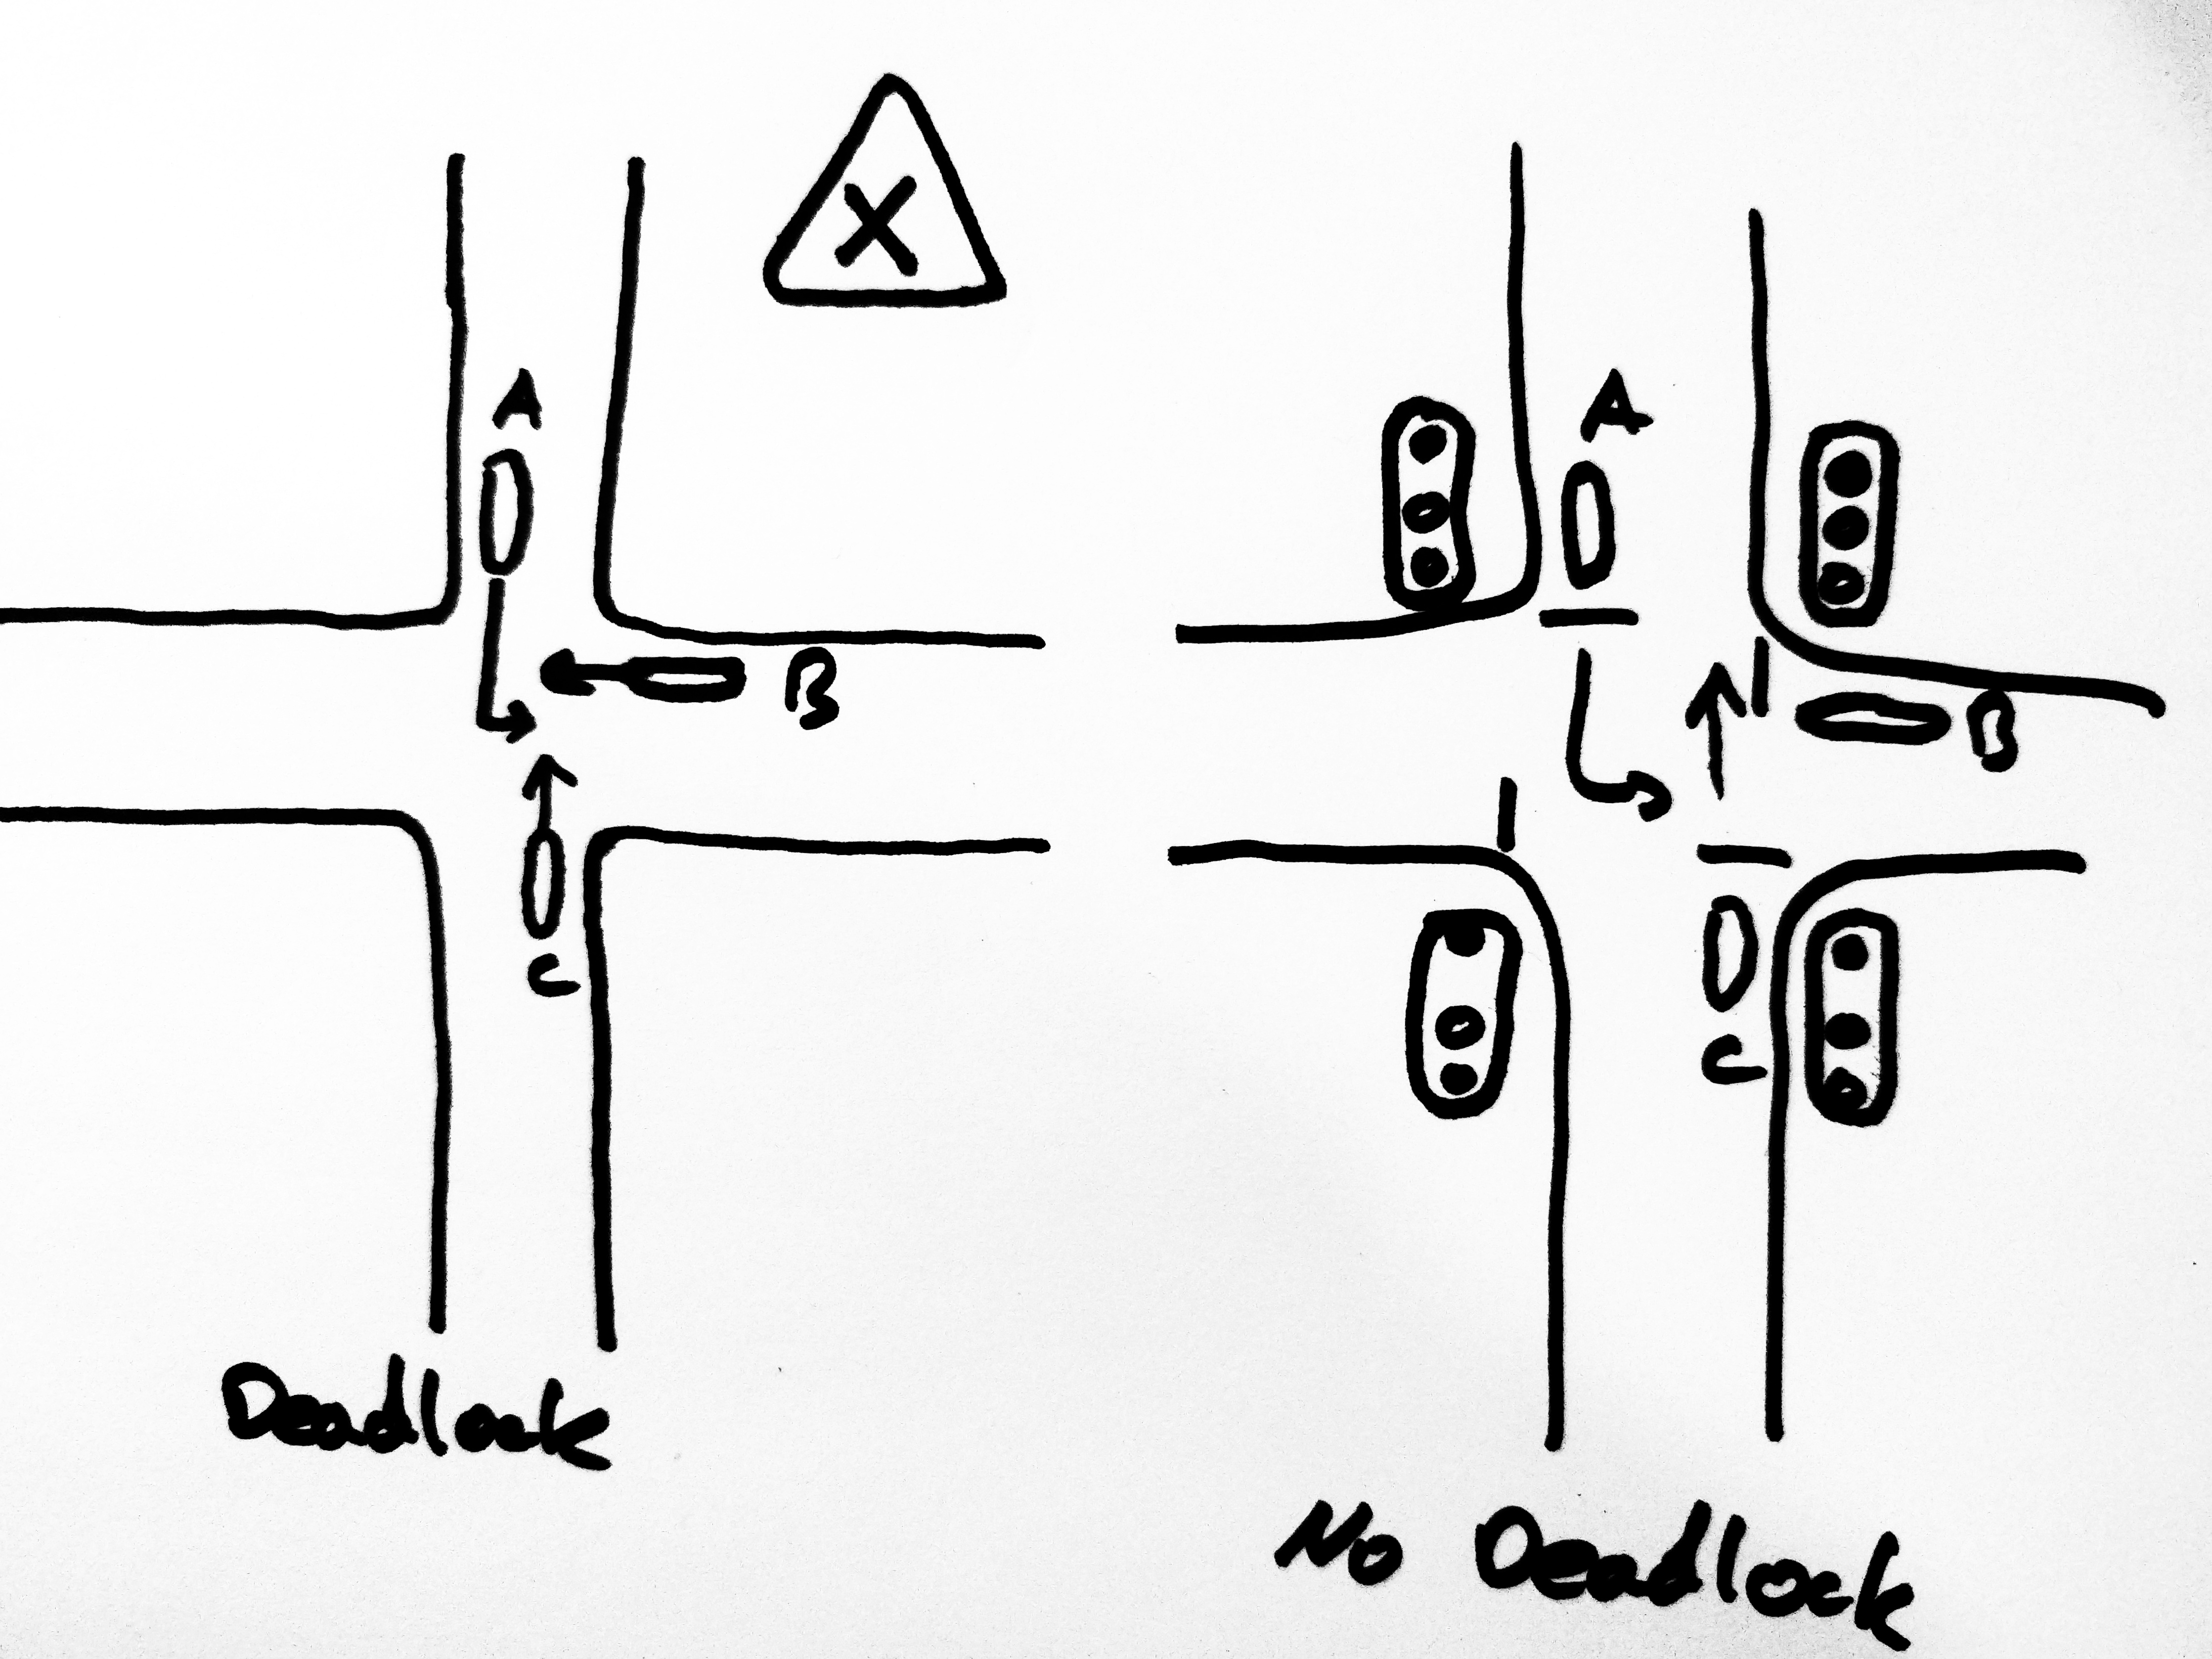 X
A
B
C
Deadlock
A
B
C
No Deadlock